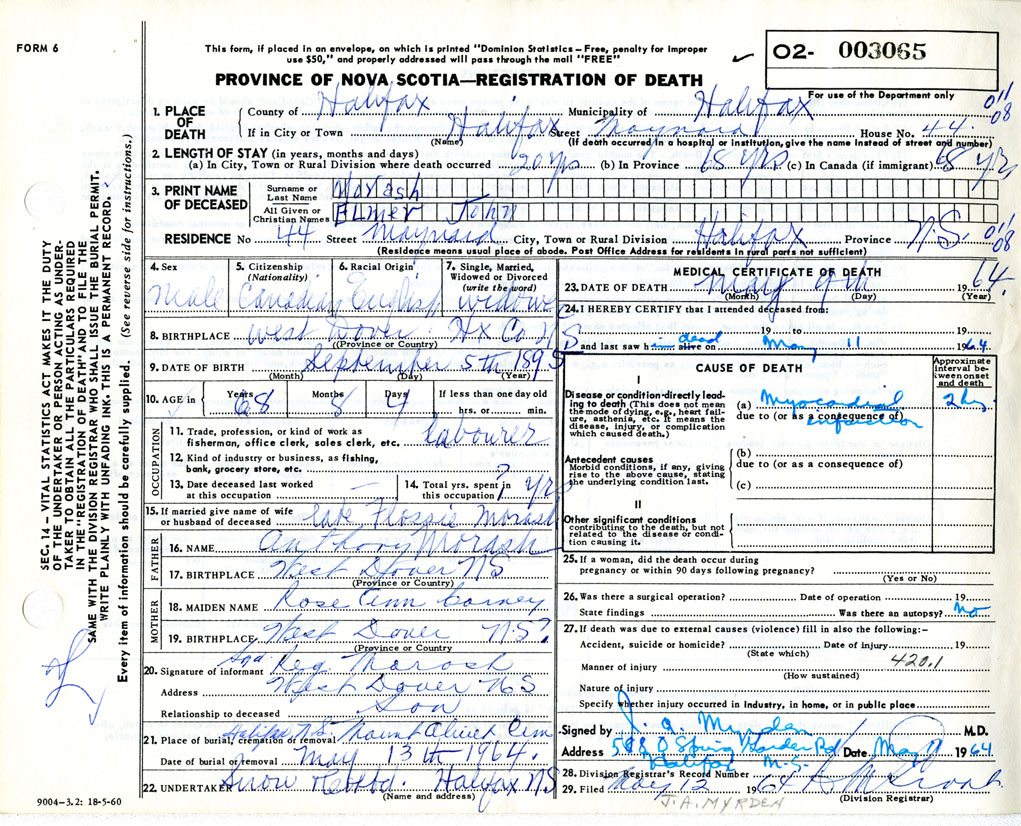 FORM 6
This form, if placed in an envelope, on which is printed "Dominion Statistics – Free, penalty for improper
use $50," and properly addressed will pass through the mail "FREE"
✓
O2- 003065
PROVINCE OF NOVA SCOTIA—REGISTRATION OF DEATH
For use of the Department only
011
08
1. PLACE OF DEATH
County of Halifax Municipality of Halifax
If in City or Town Halifax Street Maynard House No. 44
(Name) (If death occurred in a hospital or institution, give the name instead of street and number)
2. LENGTH OF STAY (in years, months and days)
(a) In City, Town or Rural Division where death occurred 20 yrs (b) In Province 68 yrs (c) In Canada (if immigrant) 68 yrs
3. PRINT NAME OF DECEASED
Surname or Last Name Morash
All Given or Christian Names Elmer John
RESIDENCE No 44 Street Maynard City, Town or Rural Division Halifax Province N.S. 011
08
(Residence means usual place of abode. Post Office Address for residents in rural parts not sufficient)
4. Sex Male
5. Citizenship (Nationality) Canadian
6. Racial Origin English
7. Single, Married, Widowed or Divorced (write the word) widower
8. BIRTHPLACE West Dover Hx Co NS
(Province or Country)
9. DATE OF BIRTH September 5th 1895
(Month) (Day) (Year)
10. AGE in Years 68 Months 8 Days 4 If less than one day old
hrs. or min.
OCCUPATION
11. Trade, profession, or kind of work as
fisherman, office clerk, sales clerk, etc. labourer
12. Kind of industry or business, as fishing,
bank, grocery store, etc.
13. Date deceased last worked
at this occupation —
14. Total yrs. spent in
this occupation ? yrs
15. If married give name of wife
or husband of deceased late Flossie Morash
FATHER
16. NAME Anthony Morash
17. BIRTHPLACE West Dover NS
(Province or Country)
MOTHER
18. MAIDEN NAME Rose Ann Carney
19. BIRTHPLACE West Dover N.S?
(Province or Country)
20. Signature of informant Sgd Reg. Morash
Address West Dover NS
Relationship to deceased Son
21. Place of burial, cremation or removal Halifax, N.S. Mount Olivet Cem
Date of burial or removal May 13th 1964.
22. UNDERTAKER Snow Halifax NS
(Name and address)
9004–3.2: 18-5-60
MEDICAL CERTIFICATE OF DEATH
23. DATE OF DEATH May 9th 1964
(Month) (Day) (Year)
24. I HEREBY CERTIFY that I attended deceased from:
19 to 19
and last saw h alive on dead May 11 1964
CAUSE OF DEATH
Approximate interval between onset and death
I
Disease or condition directly leading to death (This does not mean
the mode of dying, e.g., heart failure, asthma, etc. It means the
disease, injury, or complication
which caused death.)
(a) Myocardial infarction 2 hrs
due to (or as a consequence of)
Antecedent causes
Morbid conditions, if any, giving
rise to the above cause, stating
the underlying condition last.
(b)
due to (or as a consequence of)
(c)
II
Other significant conditions
contributing to the death, but not
related to the disease or condition causing it.
25. If a woman, did the death occur during
pregnancy or within 90 days following pregnancy?
(Yes or No)
26. Was there a surgical operation? Date of operation 19
State findings Was there an autopsy? No
27. If death was due to external causes (violence) fill in also the following:–
Accident, suicide or homicide? Date of injury 19
(State which)
420.1
Manner of injury
(How sustained)
Nature of injury
Specify whether injury occurred in industry, in home, or in public place
Signed by J. A. Myrden M.D.
Address Spring Garden Rd Date May 11 1964
Halifax N.S.
28. Division Registrar's Record Number
29. Filed May 12 1964
(Division Registrar)
J.A. MYRDEN
SEC. 14 – VITAL STATISTICS ACT MAKES IT THE DUTY
OF THE UNDERTAKER OR PERSON ACTING AS UNDERTAKER TO OBTAIN ALL THE PARTICULARS REQUIRED
IN THE "REGISTRATION OF DEATH" AND TO FILE THE
SAME WITH THE DIVISION REGISTRAR WHO SHALL ISSUE THE BURIAL PERMIT.
WRITE PLAINLY WITH UNFADING INK. THIS IS A PERMANENT RECORD.
Every item of information should be carefully supplied. (See reverse side for instructions.)